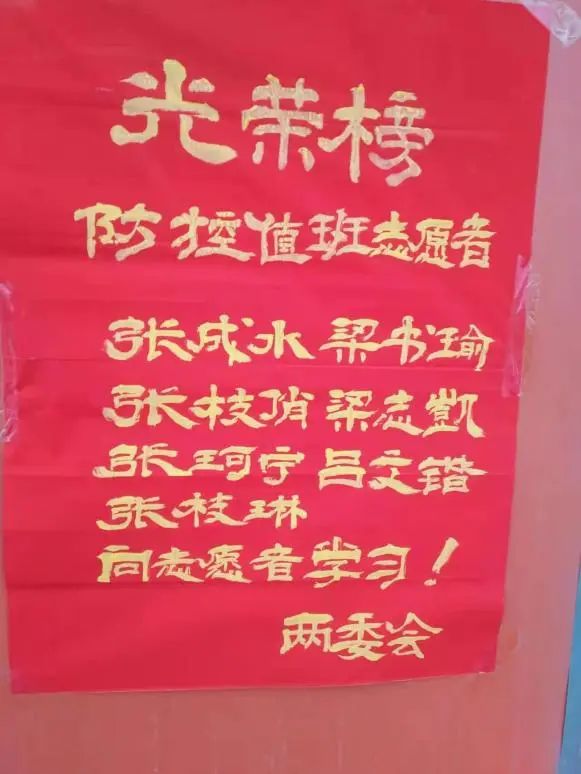 光荣榜
防控值班志愿者
张成水 梁书瑜
张枝俏 梁志凯
张珂宁 吕文锴
张枝琳
向志愿者学习！
两委会